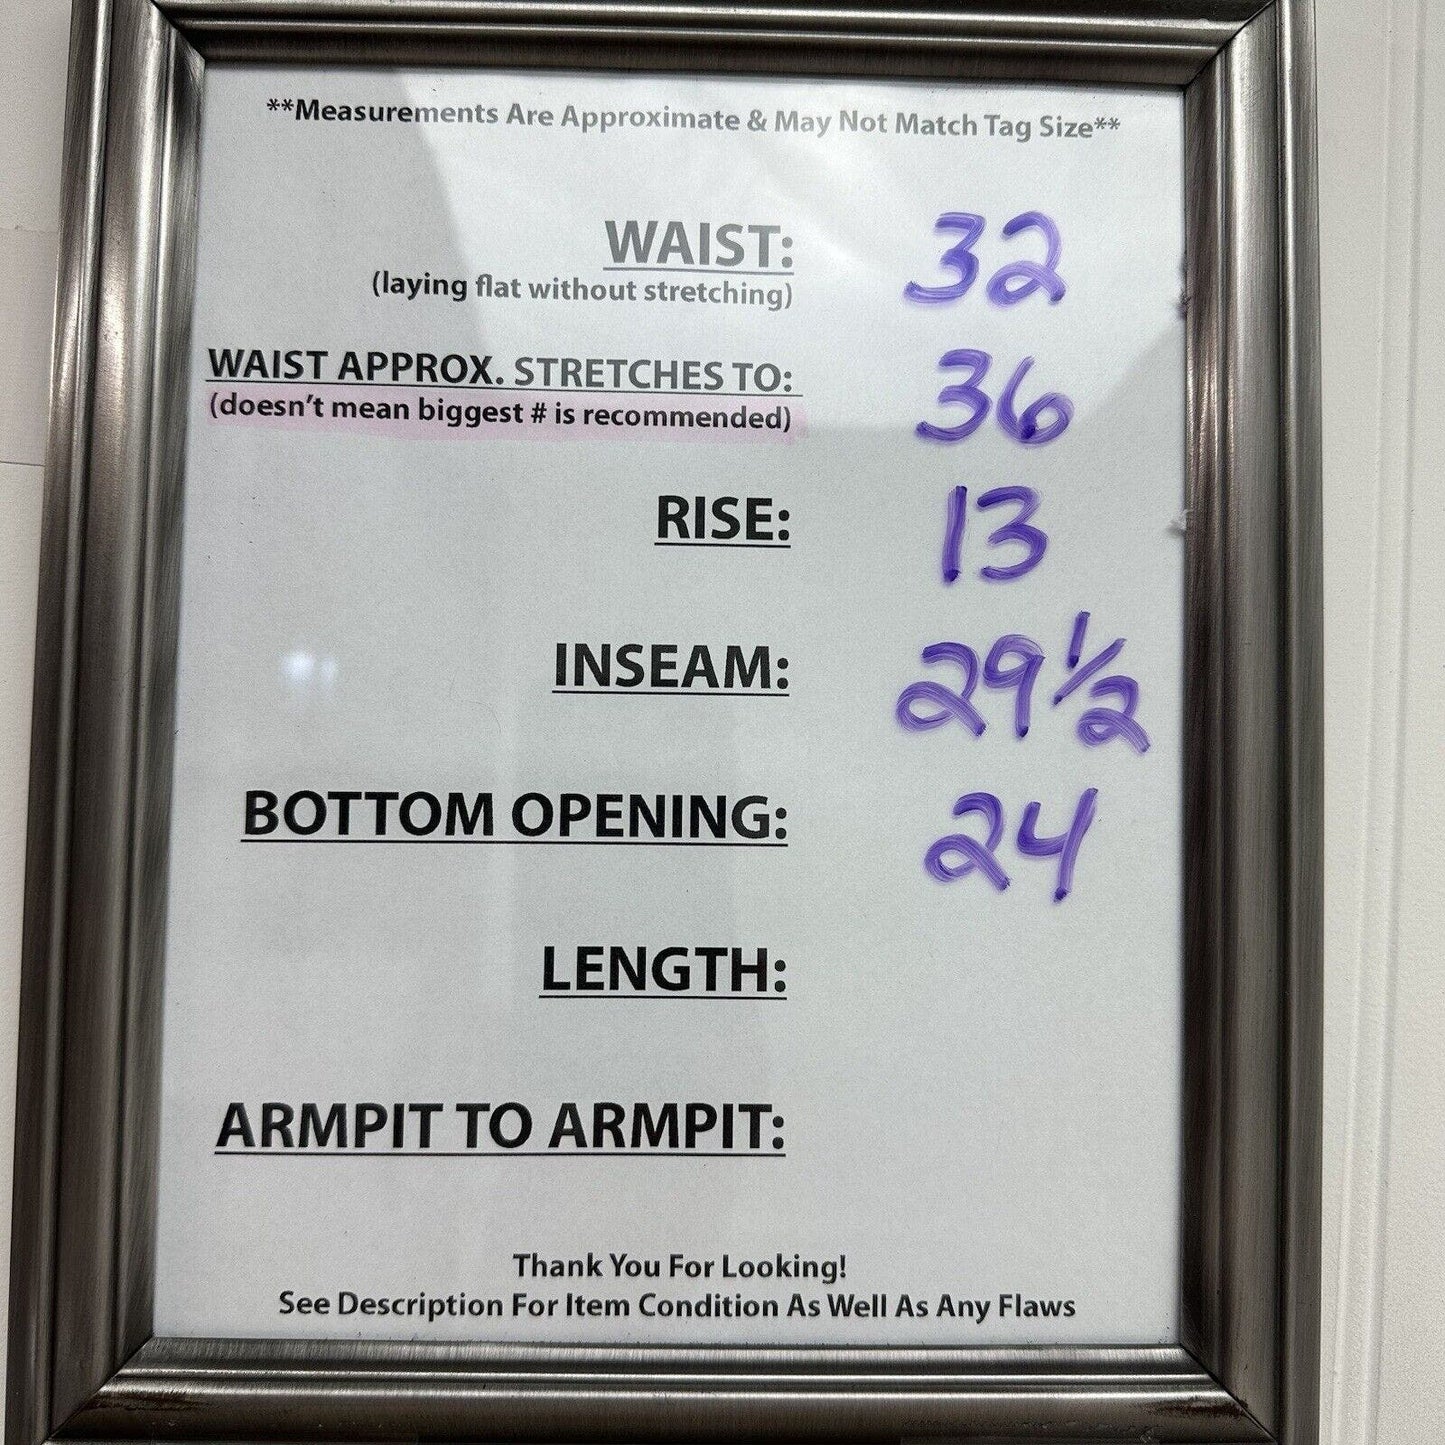 **Measurements Are Approximate & May Not Match Tag Size**
WAIST: 32
(laying flat without stretching)
WAIST APPROX. STRETCHES TO: 36
(doesn't mean biggest # is recommended)
RISE: 13
INSEAM: 29 1/2
BOTTOM OPENING: 24
LENGTH:
ARMPIT TO ARMPIT:
Thank You For Looking!
See Description For Item Condition As Well As Any Flaws